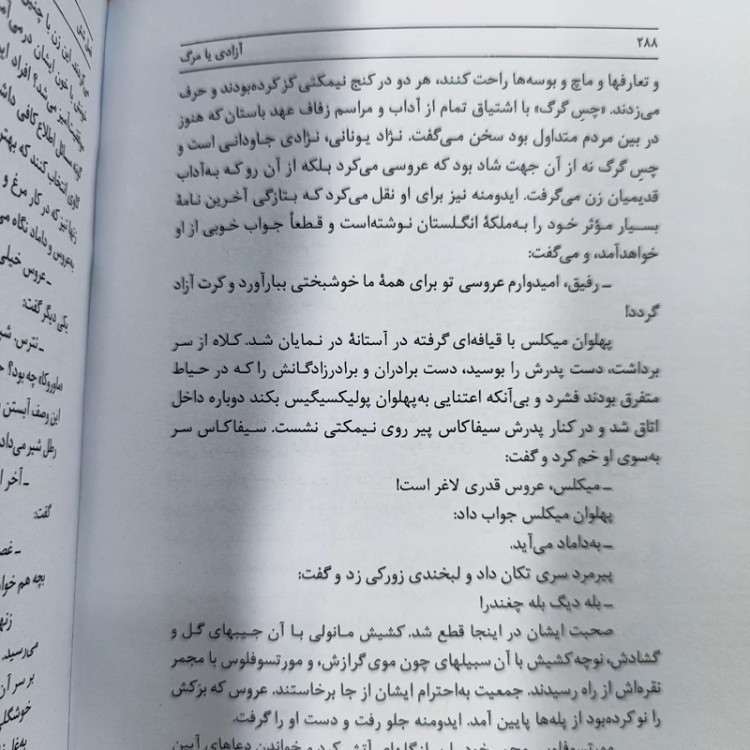 ۲۸۸
آزادی یا مرگ
و تعارفها و ماچ و بوسه‌ها راحت کنند، هر دو در کنج نیمکتی گز کرده‌بودند و حرف
می‌زدند. «چسِ گرگ» با اشتیاق تمام از آداب و مراسم زفاف عهد باستان که هنوز
در بین مردم متداول بود سخن می‌گفت. نژاد یونانی، نژادی جاودانی است و
چسِ گرگ نه از آن جهت شاد بود که عروسی می‌کرد بلکه از آن رو که به‌آداب
قدیمیان زن می‌گرفت. ایدومنه نیز برای او نقل می‌کرد که بتازگی آخرین نامهٔ
بسیار مؤثر خود را به‌ملکهٔ انگلستان نوشته‌است و قطعاً جواب خوبی از او
خواهدآمد، و می‌گفت:
ـ رفیق، امیدوارم عروسی تو برای همهٔ ما خوشبختی ببارآورد و کرت آزاد
گردد!
پهلوان میکلس با قیافه‌ای گرفته در آستانهٔ در نمایان شد. کلاه از سر
برداشت، دست پدرش را بوسید، دست برادران و برادرزادگانش را که در حیاط
متفرق بودند فشرد و بی‌آنکه اعتنایی به‌پهلوان پولیکسیگیس بکند دوباره داخل
اتاق شد و در کنار پدرش سیفاکاس پیر روی نیمکتی نشست. سیفاکاس سر
به‌سوی او خم کرد و گفت:
ـ میکلس، عروس قدری لاغر است!
پهلوان میکلس جواب داد:
ـ به‌داماد می‌آید.
پیرمرد سری تکان داد و لبخندی زورکی زد و گفت:
ـ بله دیگ بله چغندر!
صحبت ایشان در اینجا قطع شد. کشیش مانولی با آن جیبهای گل و
گشادش، نوچه کشیش با آن سبیلهای چون موی گرازش، و مورتسوفلوس با مجمر
نقره‌اش از راه رسیدند. جمعیت به‌احترام ایشان از جا برخاستند. عروس که بزکش
را نو کرده‌بود از پله‌ها پایین آمد. ایدومنه جلو رفت و دست او را گرفت.
و خواندن دعاهای آیین
به‌عروس و داماد نگاه می
ـ عروس خیلی
یکی دیگر گفت:
ـ نترس، شیر
«ماروکا» چه بود؟
این وصف آبستن
رطل شیر می‌داد
ـ آخر ا
گفت:
بچه هم خوا
می‌رسید.
بر سر آن
خوشگلی